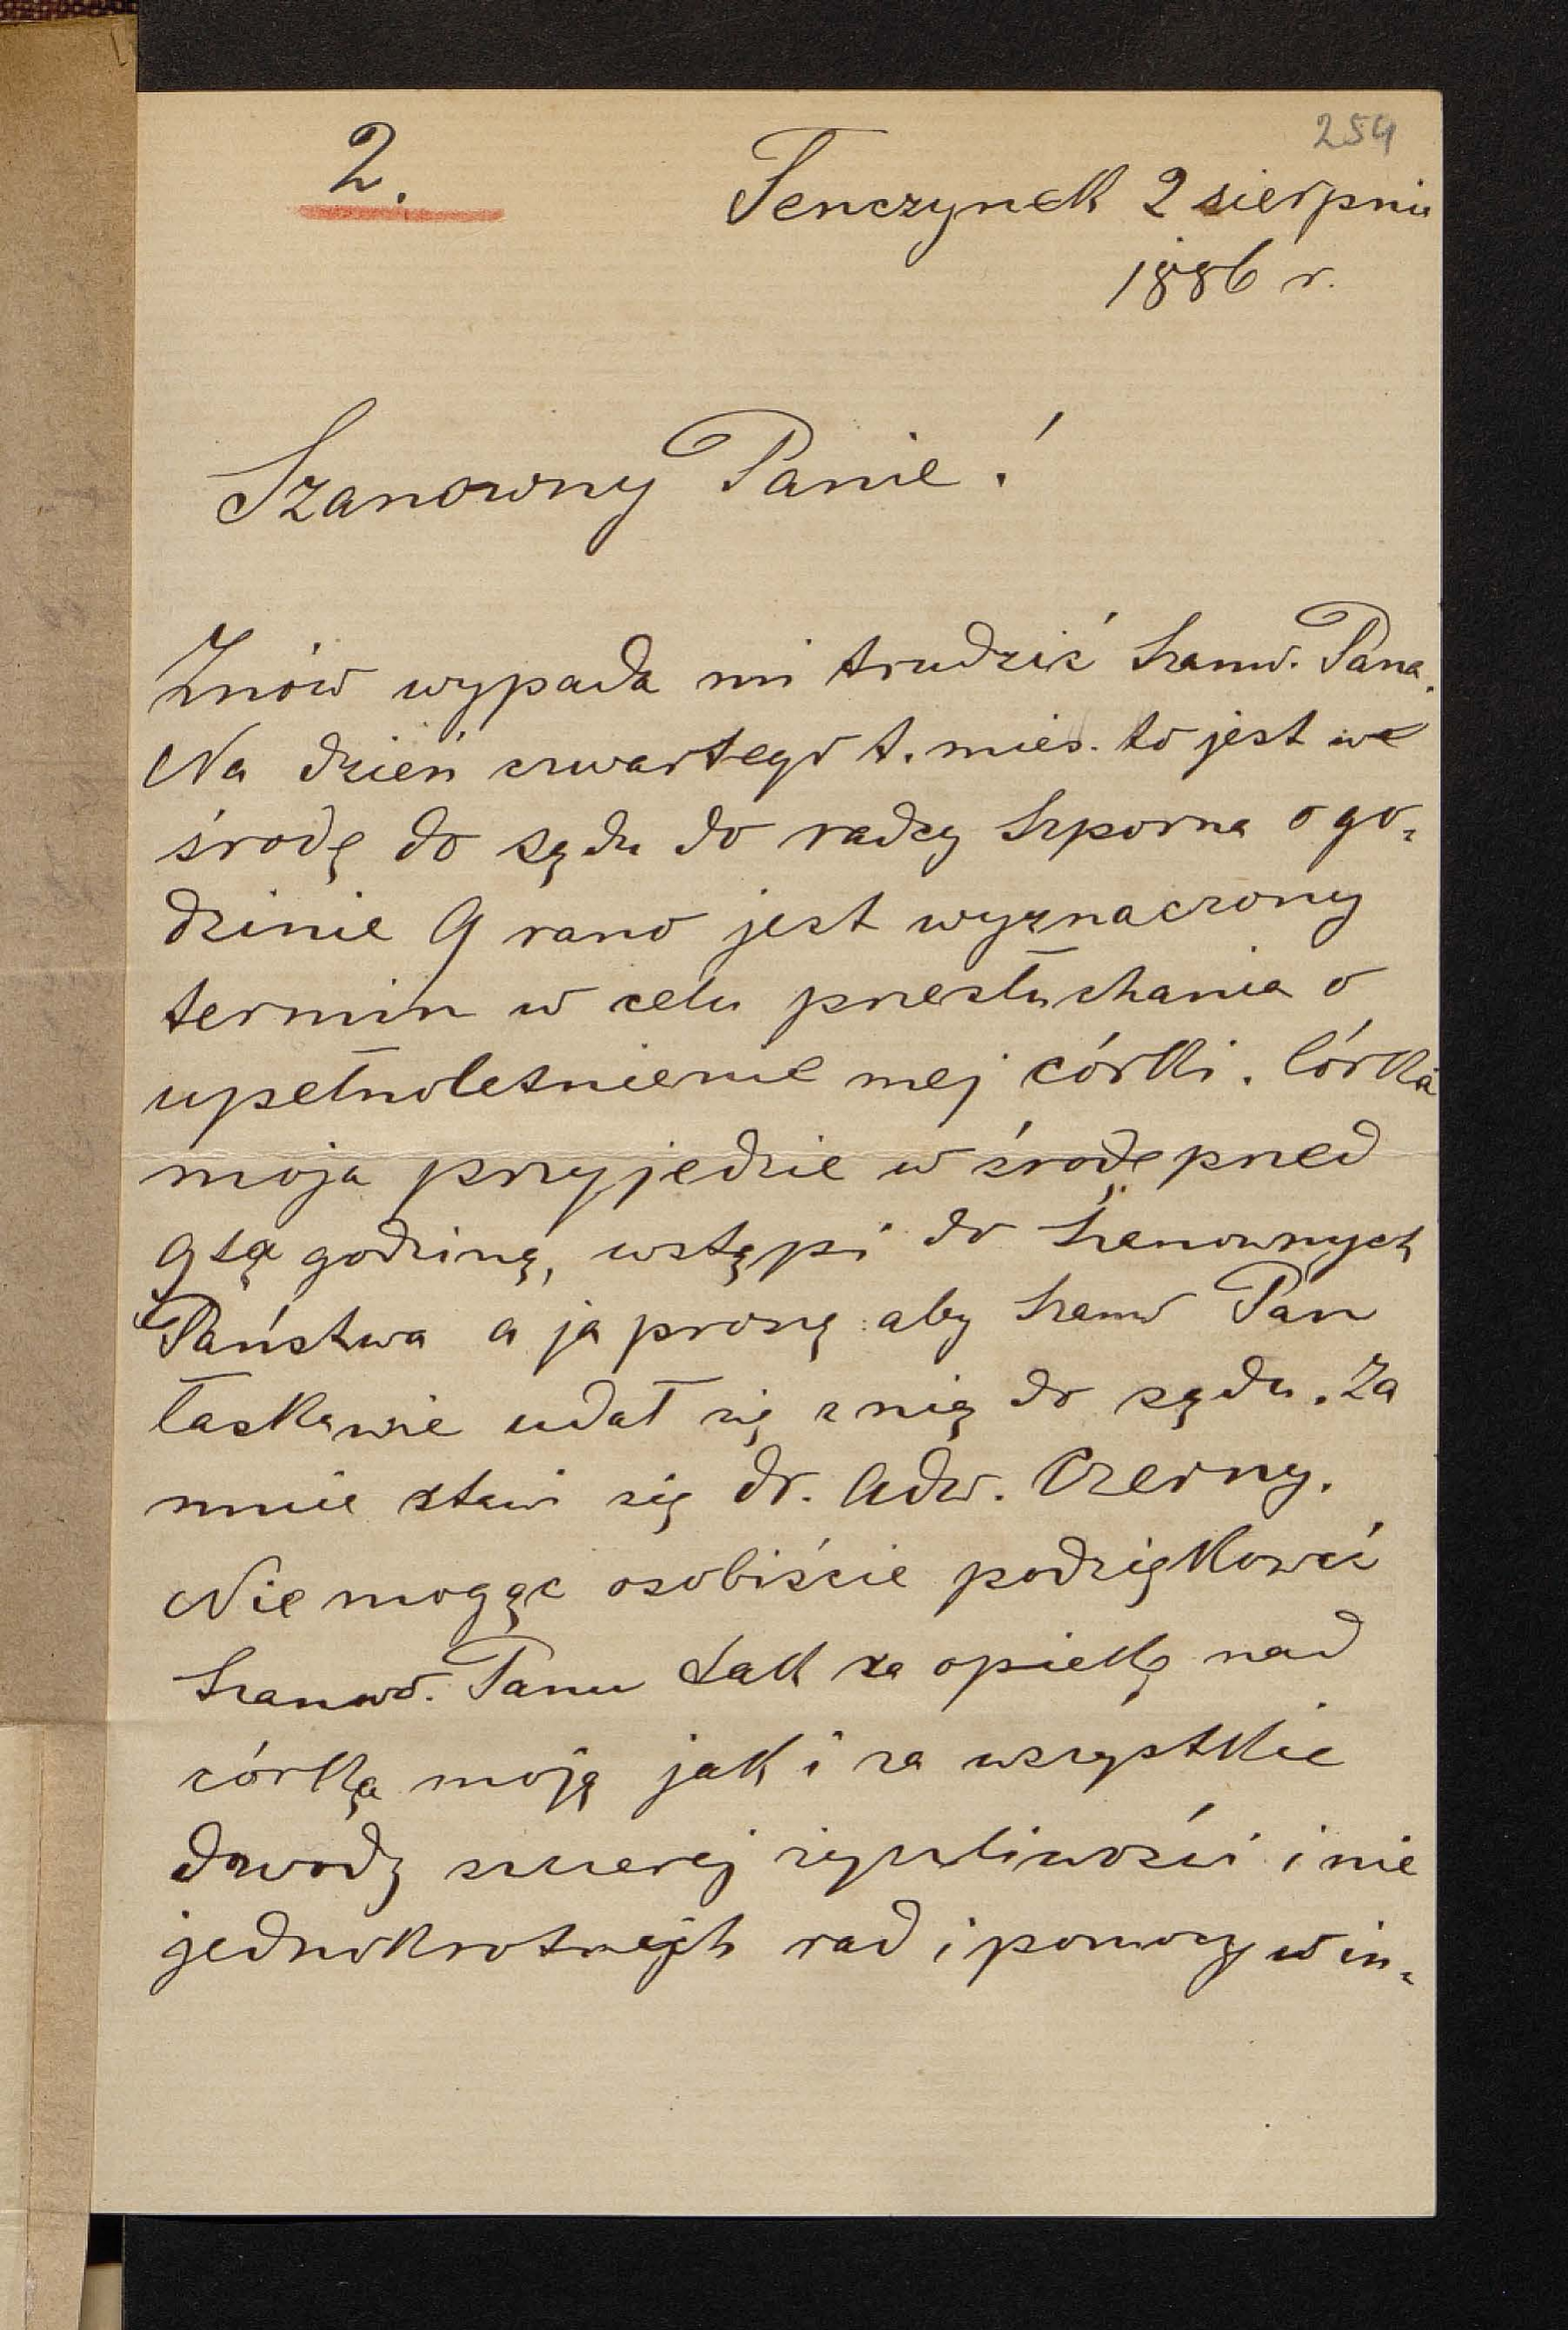 254
2.
Tenczynek 2 sierpnia
1886 r.
Szanowny Panie!
Znów wypada mi trudzić Szanw. Pana.
Na dzień czwartego t. mies. to jest we
środę do sądu do radcy Szporna o go-
dzinie 9 rano jest wyznaczony
termin w celu przesłuchania o
upełnoletnienie mej córki. Córka
moja przyjedzie w środę przed
9tą godziną, wstąpi do Szanownych
Państwa a ja proszę aby Szanw Pan
łaskawie udał się z nią do sądu. Za
mnie stawi się dr. Adw. Czerny.
Nie mogąc osobiście podziękować
Szanwo. Panu tak za opiekę nad
córką moją jak i za wszystkie
dowody szczerej życzliwości i nie
jednokrotnych rad i pomocy w in-